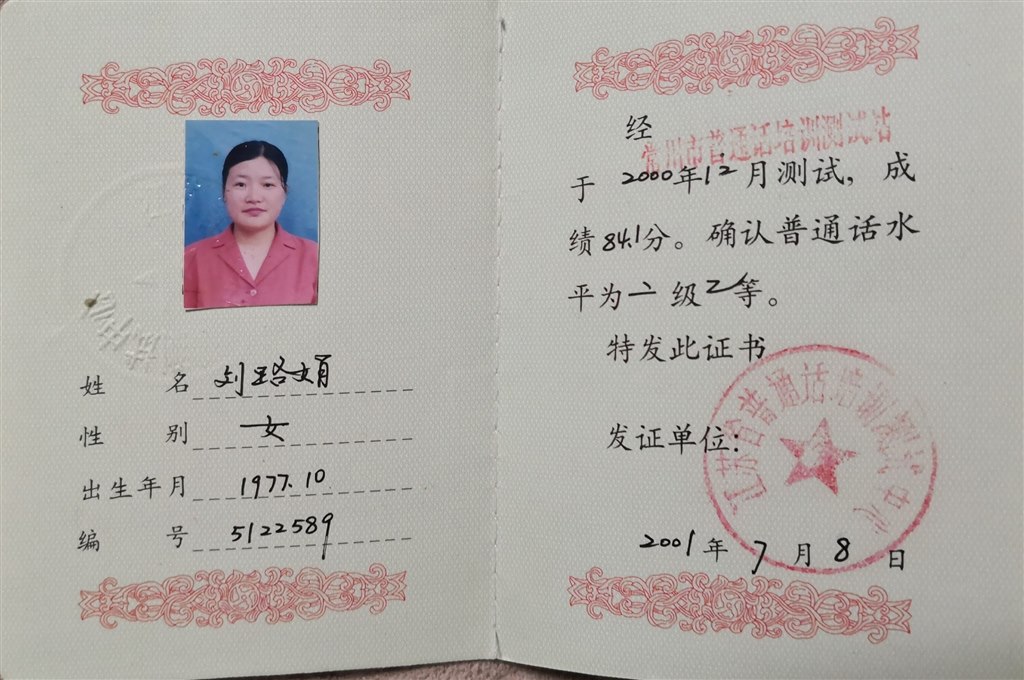 姓 名 刘璐娟
性 别 女
出生年月 1977.10
编 号 5122589
经
常州市普通话培训测试站
于 2000年12月测试，成
绩84.1分。确认普通话水
平为二级乙等。
特发此证书
发证单位：
江苏省普通话培训测试中心
2001年7月8日